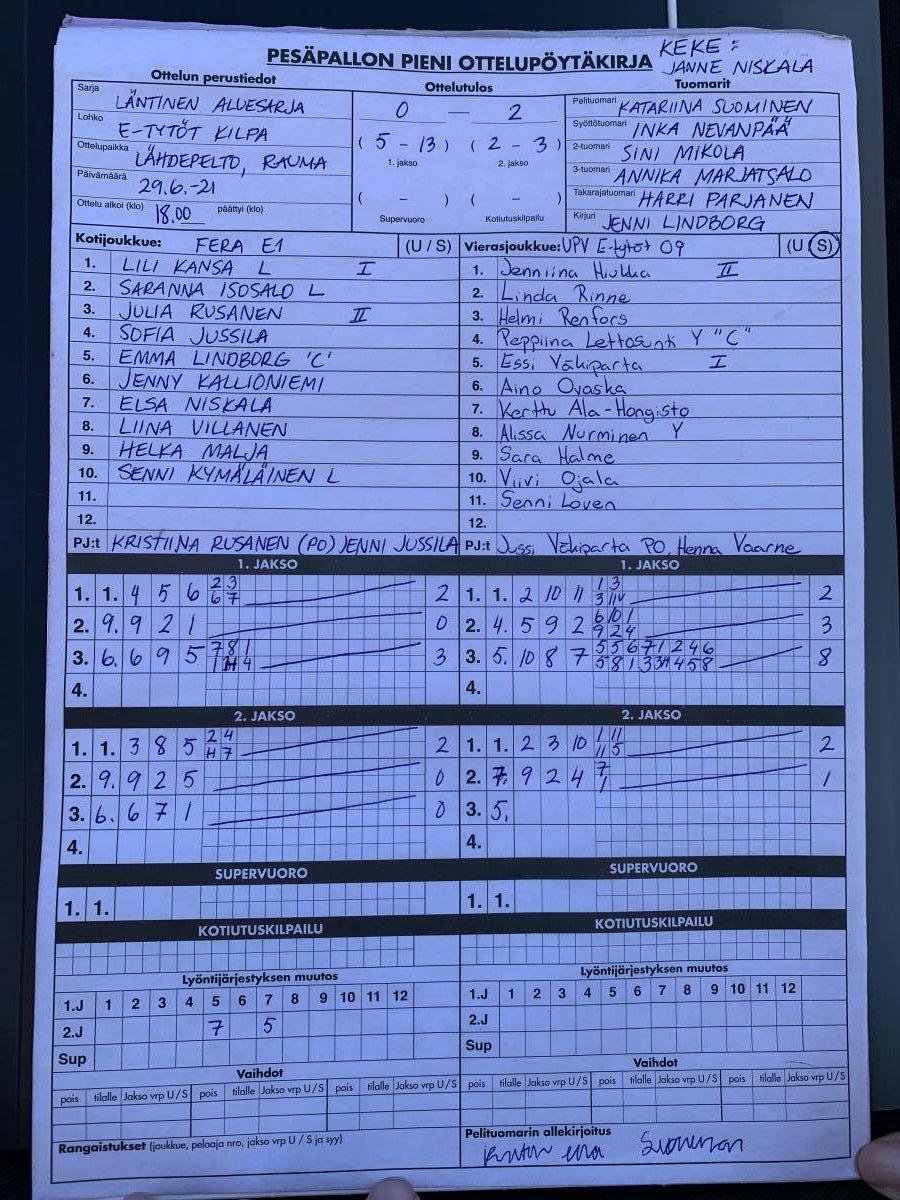 KEKE:
PESÄPALLON PIENI OTTELUPÖYTÄKIRJA JANNE NISKALA
Ottelun perustiedot Ottelutulos Tuomarit
Sarja LÄNTINEN ALUESARJA
Lohko E-TYTÖT KILPA
Ottelupaikka LÄHDEPELTO, RAUMA
Päivämäärä 29.6.-21
Ottelu alkoi (klo) 18.00 päättyi (klo)
0 — 2
( 5 - 13 ) ( 2 - 3 )
1. jakso 2. jakso
( - ) ( - )
Supervuoro Kotiutuskilpailu
Pelituomari KATARIINA SUOMINEN
Syöttötuomari INKA NEVANPÄÄ
2-tuomari SINI MIKOLA
3-tuomari ANNIKA MARJATSALO
Takarajatuomari HARRI PARJANEN
Kirjuri JENNI LINDBORG
Kotijoukkue: FERA E1 (U / S)
1. LILI KANSA L I
2. SARANNA ISOSALO L
3. JULIA RUSANEN II
4. SOFIA JUSSILA
5. EMMA LINDBORG 'C'
6. JENNY KALLIONIEMI
7. ELSA NISKALA
8. LIINA VILLANEN
9. HELKA MALJA
10. SENNI KYMÄLÄINEN L
11.
12.
PJ:t KRISTIINA RUSANEN (PO) JENNI JUSSILA
Vierasjoukkue: UPV E-tytöt 09 (U / S)
1. Jenniina Hiukka II
2. Linda Rinne
3. Helmi Renfors
4. Peppiina Y "C"
5. Essi Väkiparta I
6. Aino Ovaska
7. Kerttu Ala-Hongisto
8. Alissa Nurminen Y
9. Sara Halme
10. Viivi Ojala
11. Senni Loven
12.
PJ:t Jussi Väkiparta PO, Henna Vaarne
1. JAKSO
1. 1. 4 5 6 2 3 2
6 7
2. 9. 9 2 1 0
3. 6. 6 9 5 7 8 1 3
4.
1. JAKSO
1. 1. 2 10 11 1 3 2
2. 4. 5 9 2 6 10 1 3
9 2 4
3. 5. 10 8 7 5 5 6 7 1 2 4 6 8
4.
2. JAKSO
1. 1. 3 8 5 2 4 2
2. 9. 9 2 5 0
3. 6. 6 7 1 0
4.
2. JAKSO
1. 1. 2 3 10 1 11 2
11 5
2. 7. 9 2 4 7 1
1
3. 5.
4.
SUPERVUORO SUPERVUORO
1. 1. 1. 1.
KOTIUTUSKILPAILU KOTIUTUSKILPAILU
Lyöntijärjestyksen muutos
1.J 1 2 3 4 5 6 7 8 9 10 11 12
2.J 7 5
Sup
Lyöntijärjestyksen muutos
1.J 1 2 3 4 5 6 7 8 9 10 11 12
2.J
Sup
Vaihdot
pois tilalle Jakso vrp U / S pois tilalle Jakso vrp U / S pois tilalle Jakso vrp U / S
Vaihdot
pois tilalle Jakso vrp U / S pois tilalle Jakso vrp U / S pois tilalle Jakso vrp U / S
Rangaistukset (joukkue, pelaaja nro, jakso vrp U / S ja syy)
Pelituomarin allekirjoitus